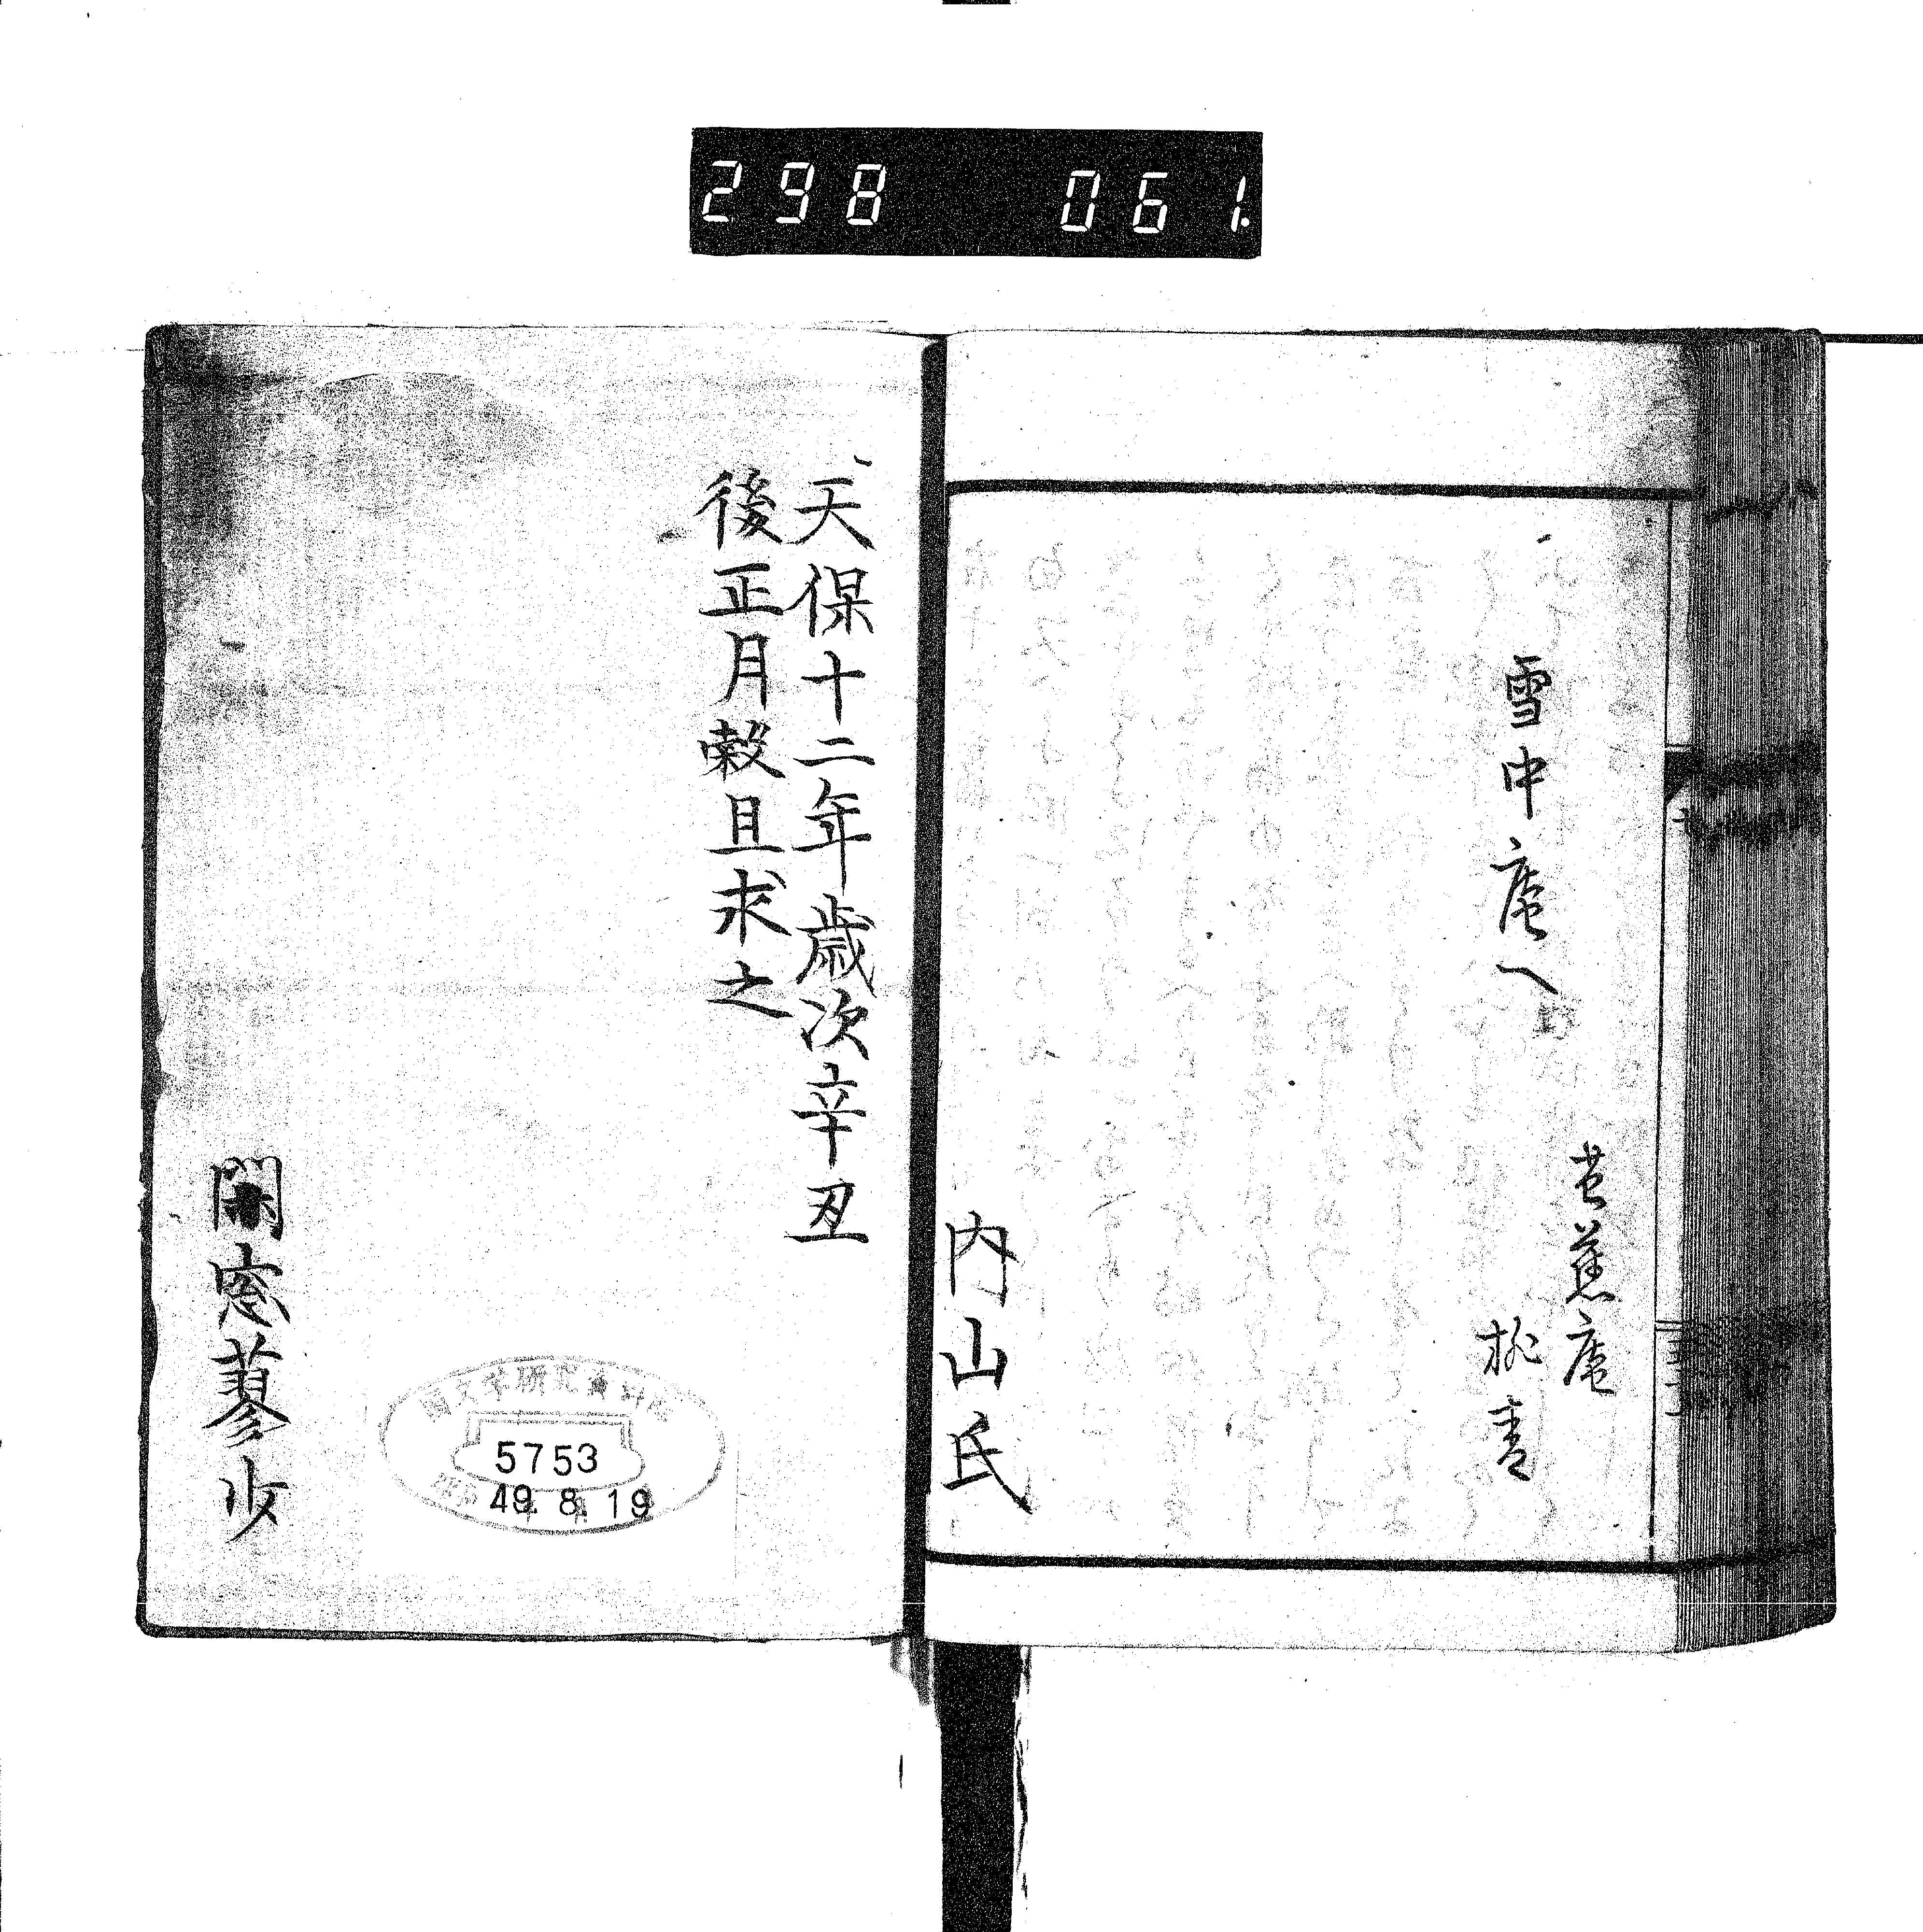 298 061.
雪中庵へ
芭蕉庵
桃青
内山氏
天保十二年歳次辛丑
後正月穀旦求之
閑窓蓼
國文学研究資料館
5753
49. 8. 19